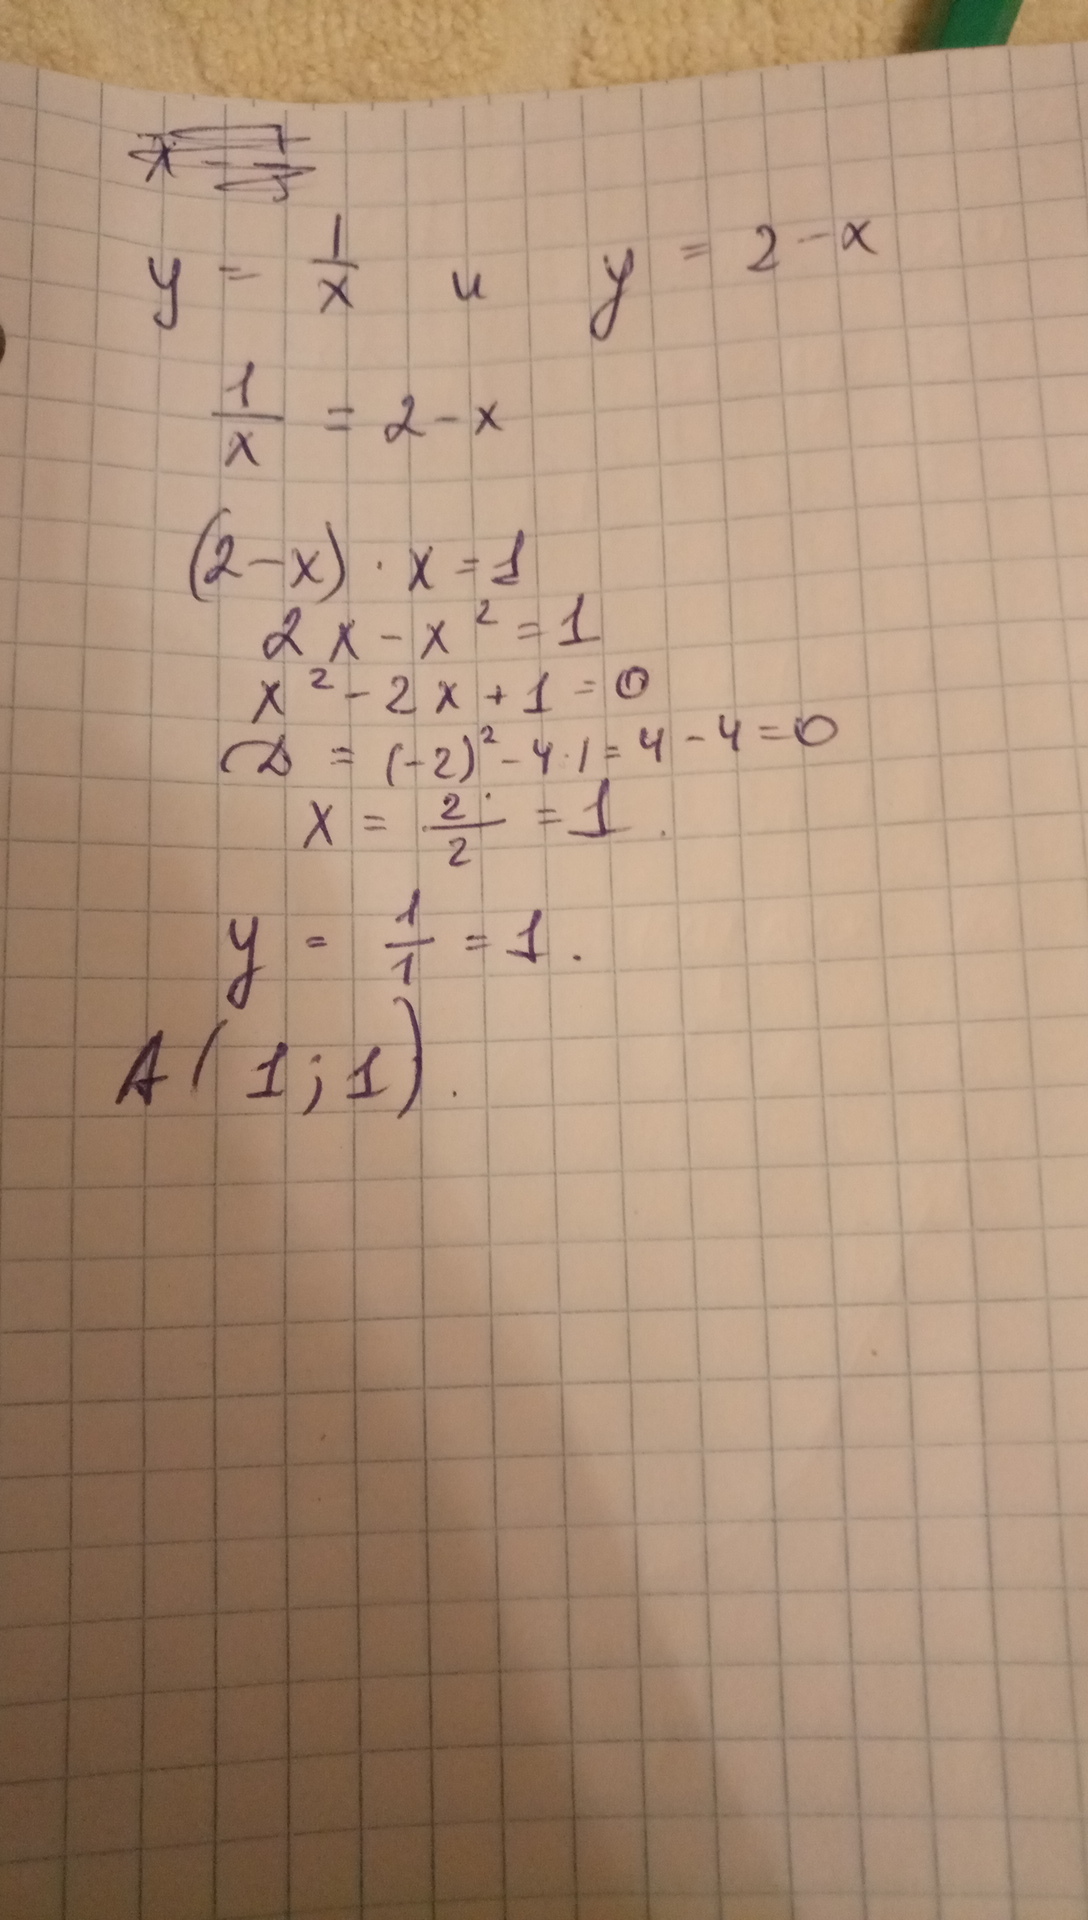 y = 1/x и y = 2 - x
1/x = 2 - x
(2 - x) · x = 1
2x - x² = 1
x² - 2x + 1 = 0
D = (-2)² - 4·1 = 4 - 4 = 0
x = 2/2 = 1.
y = 1/1 = 1.
A(1; 1).